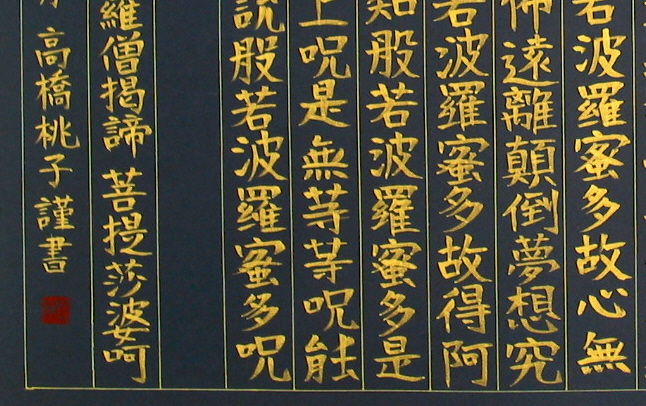 若波羅蜜多故心無
怖遠離顛倒夢想究
若波羅蜜多故得阿
知般若波羅蜜多是
上呪是無等等呪能
説般若波羅蜜多呪
羅僧掲諦 菩提莎婆呵
高橋桃子謹書